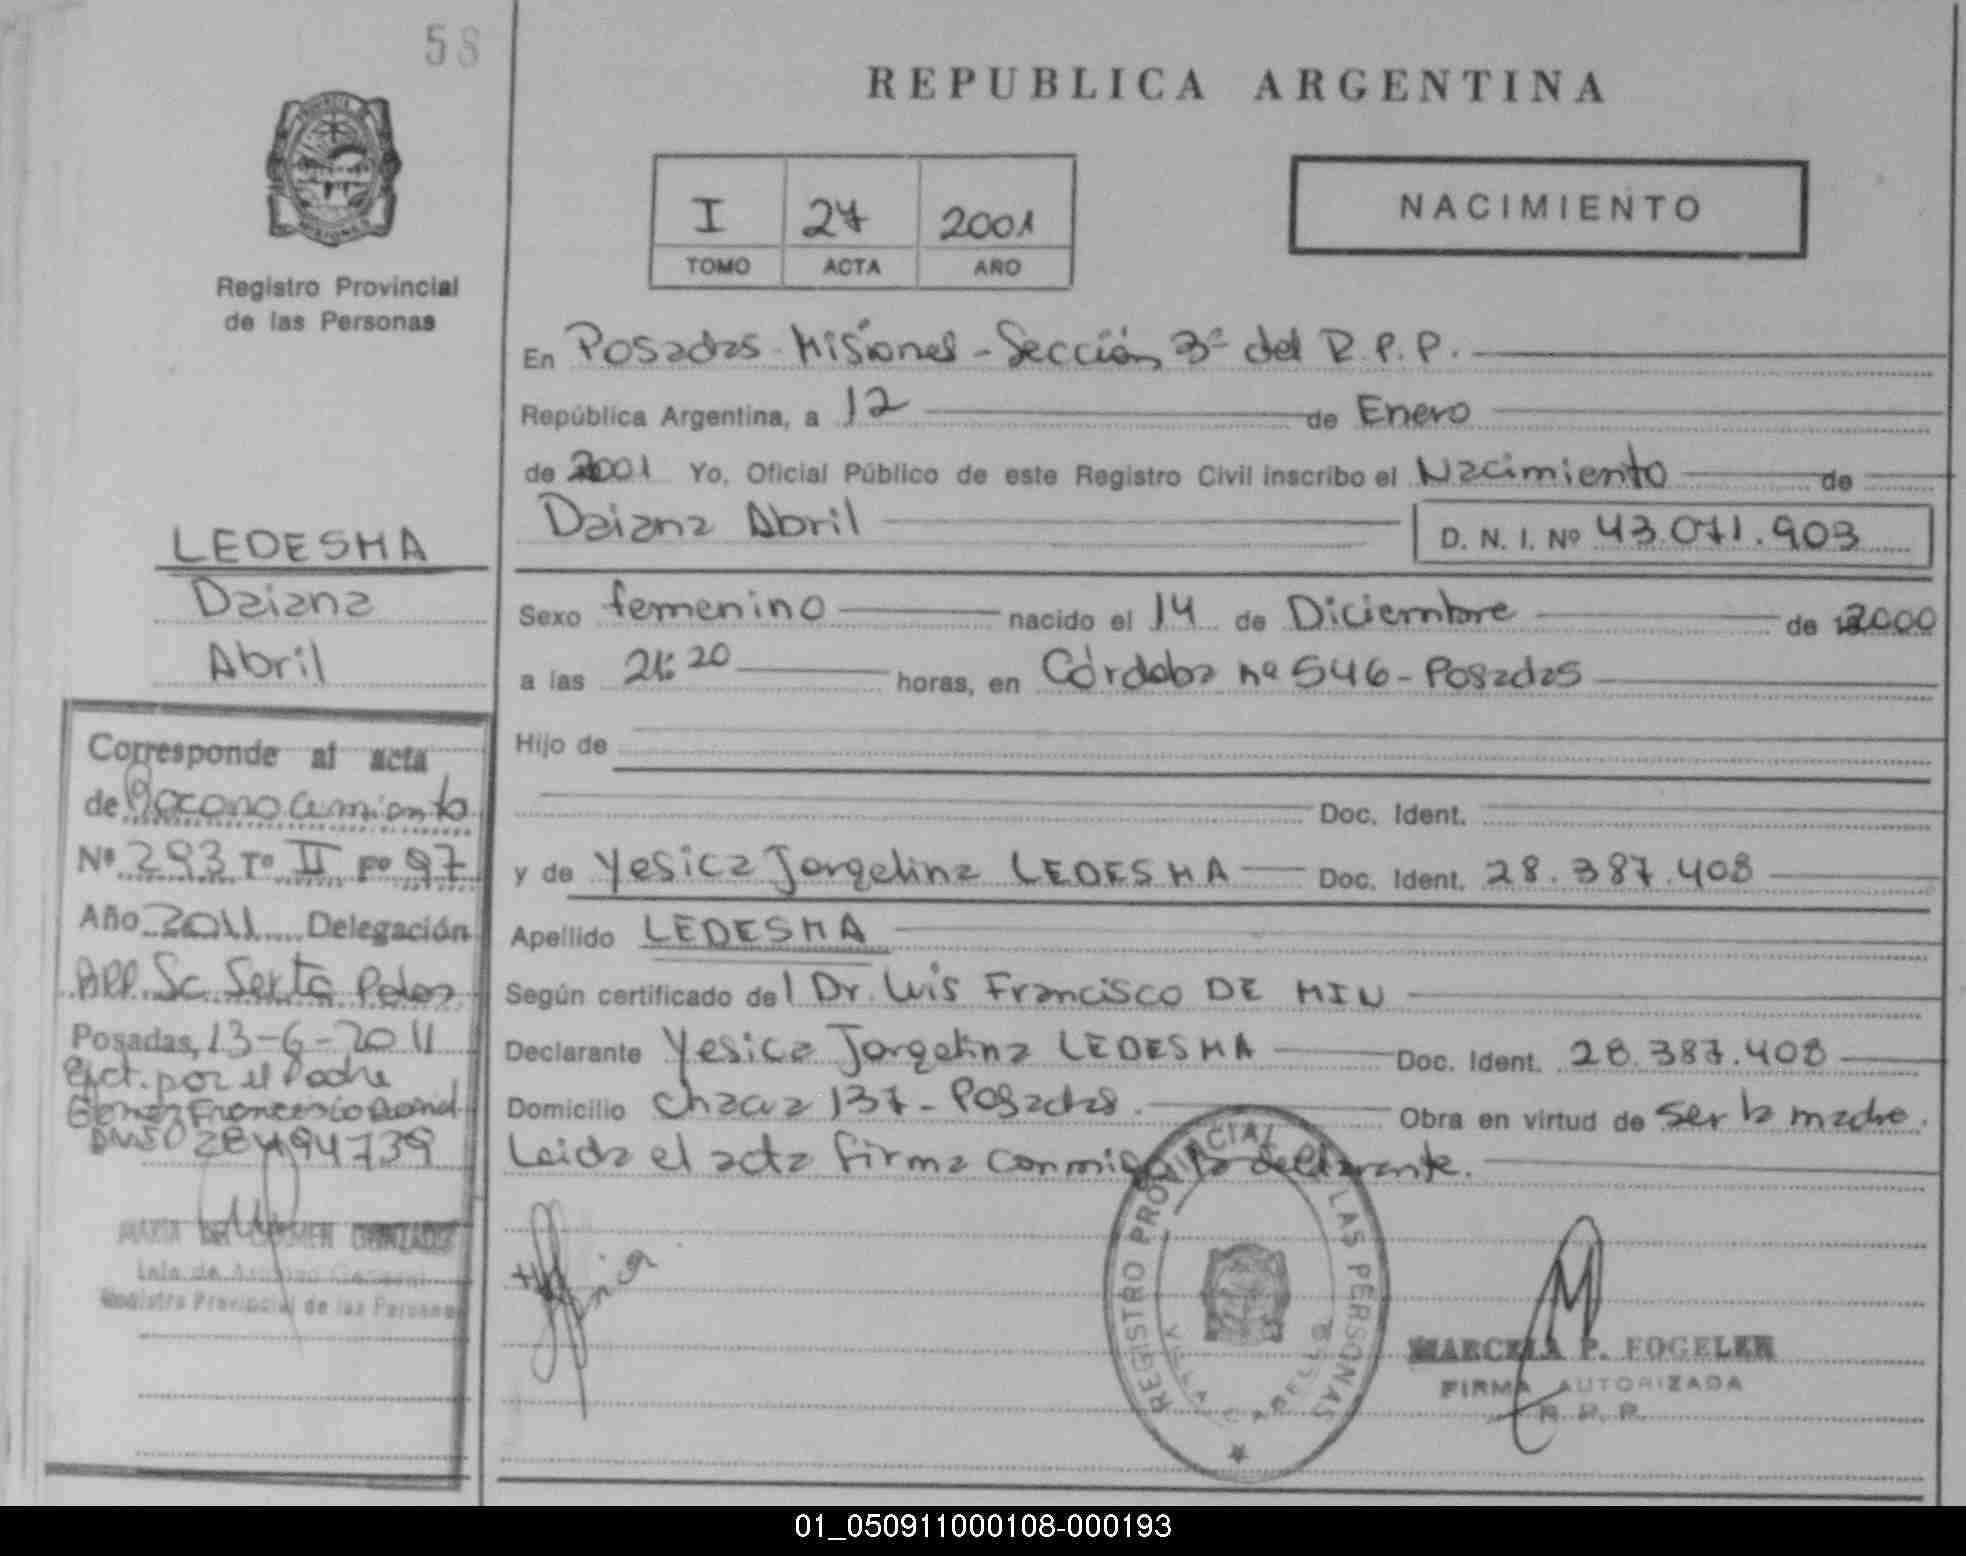 58
REPUBLICA ARGENTINA
I 27 2001
TOMO ACTA AÑO
NACIMIENTO
Registro Provincial
de las Personas
En Posadas - Misiones - Sección 3ª del R.P.P.
República Argentina, a 12 de Enero
de 2001 Yo, Oficial Público de este Registro Civil inscribo el Nacimiento de
Daiana Abril D. N. I. Nº 43.071.903
LEDESMA
Daiana
Abril
Sexo femenino nacido el 14 de Diciembre de 2000
a las 21:20 horas, en Córdoba nº 546 - Posadas
Hijo de
Doc. Ident.
y de Yesica Jorgelina LEDESMA Doc. Ident. 28.387.408
Apellido LEDESMA
Según certificado del Dr. Luis Francisco DE MIN
Declarante Yesica Jorgelina LEDESMA Doc. Ident. 28.387.408
Domicilio Chacra 137 - Posadas. Obra en virtud de ser la madre.
Leida el acta firma conmigo la declarante.
Corresponde al acta
de Reconocimiento
Nº 293 Tº II Fº 97
Año 2011 Delegación
Sc. Sexta Pdas
Posadas, 13-6-2011
Efct. por el Padre
Gomez Francisco Daniel
DNI 28494739
MARIA DEL CARMEN GONZALEZ
Jefe de Archivo General
Registro Provincial de las Personas
REGISTRO PROVINCIAL DE LAS PERSONAS
VILLA CABELLO
MARCELA P. FOGELER
FIRMA AUTORIZADA
R. P. P.
01_050911000108-000193